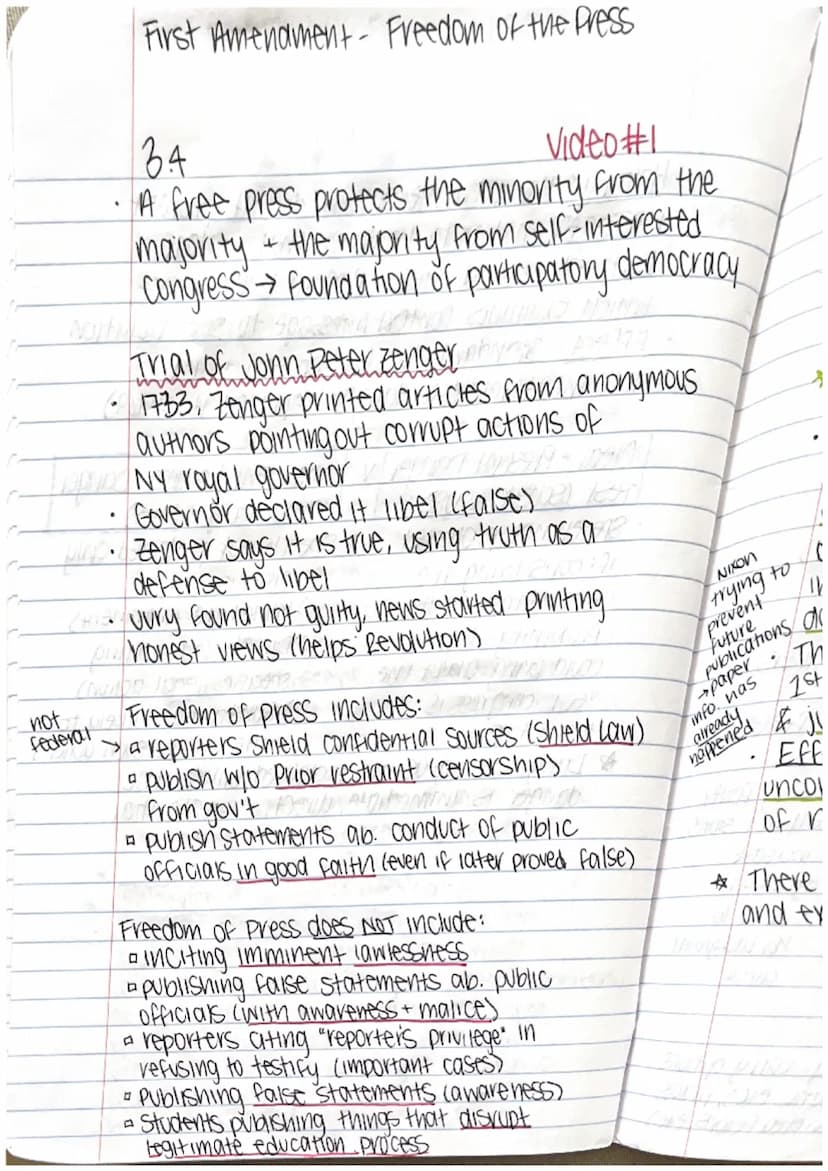 First Amendment - Freedom of the Press
3.4
Video #1
· A free press protects the minority from the
majority + the majority from self-interested
Congress → foundation of participatory democracy
Trial of John Peter Zenger
· 1733, Zenger printed articles from anonymous
authors pointing out corrupt actions of
NY royal governor
· Governor declared it libel (false)
· Zenger says it is true, using truth as a
defense to libel
· Jury found not guilty, news started printing
honest views (helps Revolution)
Freedom of press includes:
not
federal →
▫ reporters shield confidential sources (Shield Law)
▫ publish w/o prior restraint (censorship)
from gov't
▫ publish statements ab. conduct of public
officials in good faith (even if later proved false)
Freedom of Press does NOT include:
▫ inciting imminent lawlessness
▫ publishing false statements ab. public
officials (with awareness + malice)
▫ reporters citing "reporter's privilege" in
refusing to testify (important cases)
▫ Publishing false statements (awareness)
▫ Students publishing things that disrupt
legitimate education process
Nixon
trying to
prevent
future
publications
→ paper
info. has
already
happened
· Th
1st
& ju
· Eff
uncon
of r
☆ There
and ex